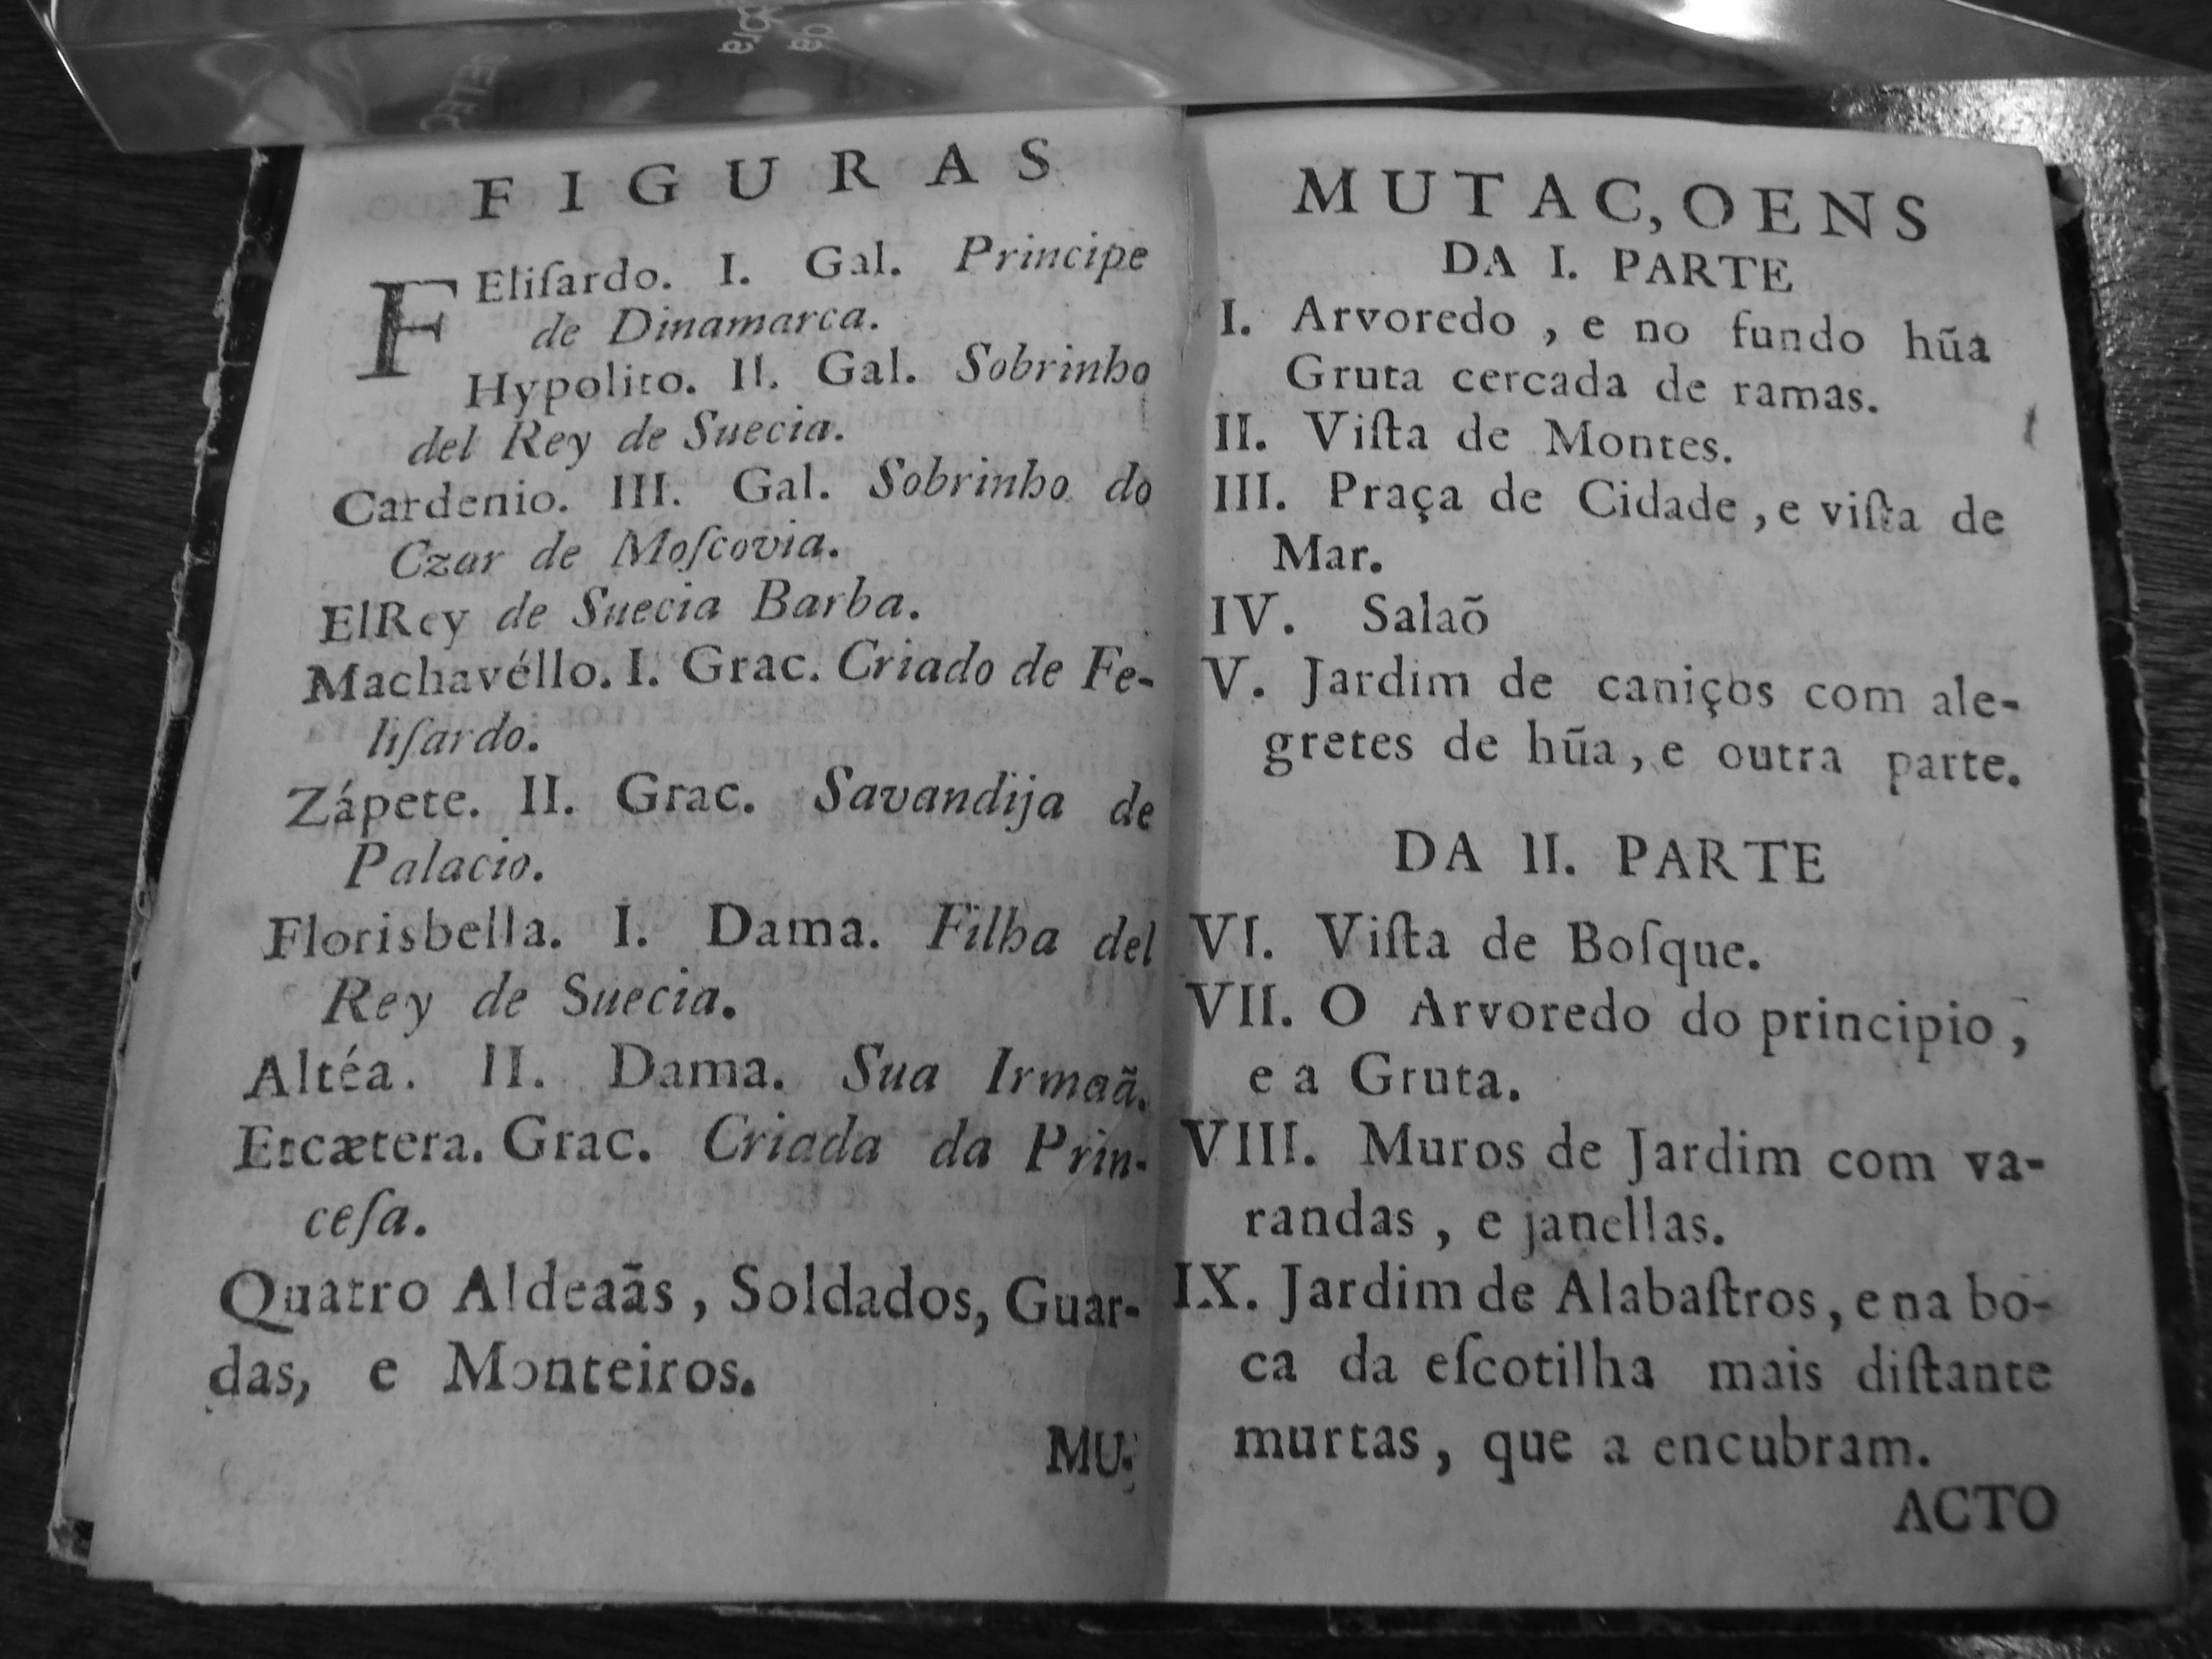 FIGURAS
FEliſardo. I. Gal. Principe
de Dinamarca.
Hypolito. II. Gal. Sobrinho
del Rey de Suecia.
Cardenio. III. Gal. Sobrinho do
Czar de Moſcovia.
ElRey de Suecia Barba.
Machavéllo. I. Grac. Criado de Fe-
liſardo.
Zápete. II. Grac. Savandija de
Palacio.
Florisbella. I. Dama. Filha del
Rey de Suecia.
Altéa. II. Dama. Sua Irmaã.
Etcætera. Grac. Criada da Prin-
ceſa.
Quatro Aldeaãs, Soldados, Guar-
das, e Monteiros.
MU-
MUTAC,OENS
DA I. PARTE
I. Arvoredo, e no fundo hũa
Gruta cercada de ramas.
II. Viſta de Montes.
III. Praça de Cidade, e viſta de
Mar.
IV. Salaõ
V. Jardim de caniços com ale-
gretes de hũa, e outra parte.
DA II. PARTE
VI. Viſta de Boſque.
VII. O Arvoredo do principio,
e a Gruta.
VIII. Muros de Jardim com va-
randas, e janellas.
IX. Jardim de Alabaſtros, e na bo-
ca da eſcotilha mais diſtante
murtas, que a encubram.
ACTO